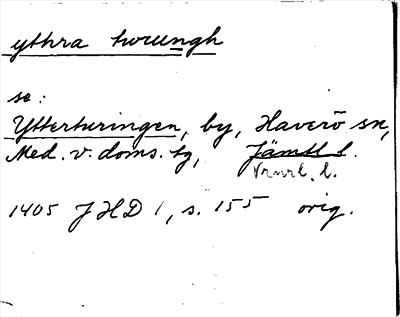 ythra twungh
se:
Ytterturingen, by, Haverö sn,
Med. v. doms. tg, Jämtl l.
Vrnrl. l.
1405 JHD 1, s. 155 orig.